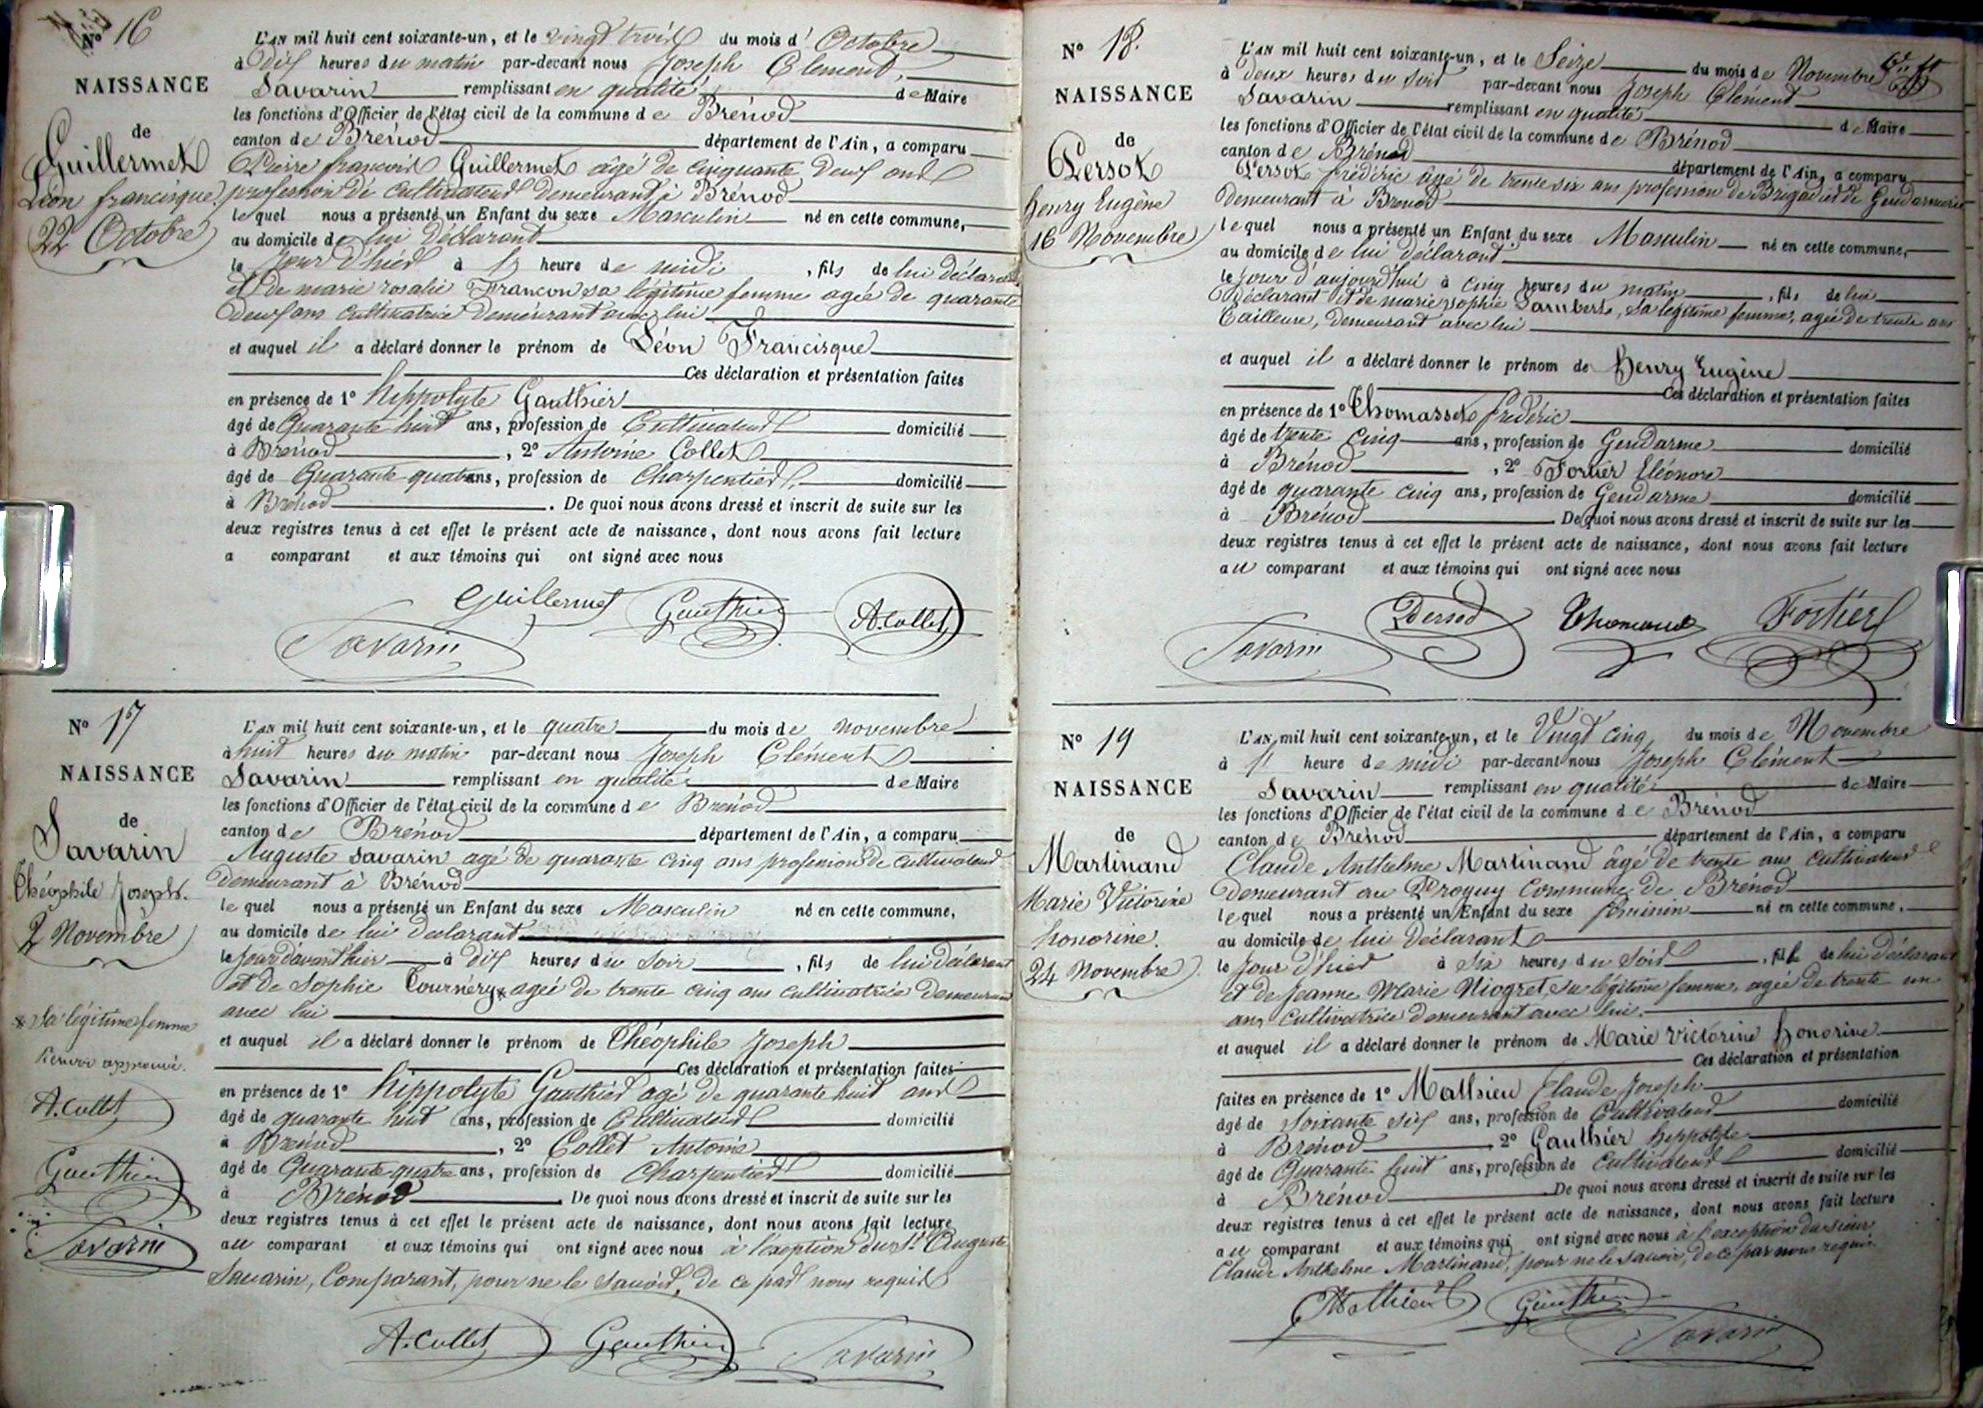 N° 16
NAISSANCE
de
Guillermet
Léon francisque
22 Octobre
L'AN mil huit cent soixante-un, et le vingt trois du mois d' Octobre
à dix heures du matin par-devant nous Joseph Clément,
Savarin remplissant en qualité de Maire
les fonctions d'Officier de l'état civil de la commune de Brénod
canton de Brénod département de l'Ain, a comparu
Pierre françois Guillermet âgé de cinquante deux ans
profession de cultivateur demeurant à Brénod
lequel nous a présenté un Enfant du sexe Masculin né en cette commune,
au domicile de lui Déclarant
le jour d'hier à heure de midi , fils de lui Déclarant
et de marie rosalie Francon sa légitime femme agée de quarante
deux ans cultivatrice demeurant avec lui
et auquel il a déclaré donner le prénom de Léon Francisque
Ces déclaration et présentation faites
en présence de 1° hippolyte Gauthier
âgé de Quarante huit ans, profession de Cultivateur domicilié
à Brénod , 2° Antoine Collet
âgé de Quarante quatre ans, profession de Charpentier domicilié
à Brénod . De quoi nous avons dressé et inscrit de suite sur les
deux registres tenus à cet effet le présent acte de naissance, dont nous avons fait lecture
a comparant et aux témoins qui ont signé avec nous
Guillermet Gauthier A. Collet
Savarin
N° 17
NAISSANCE
de
Savarin
Théophile Joseph.
2 Novembre
* sa légitime femme
Renvoi approuvé.
A. Collet
Gauthier
Savarin
L'AN mil huit cent soixante-un, et le quatre du mois de novembre
à huit heures du matin par-devant nous Joseph Clément
Savarin remplissant en qualité de Maire
les fonctions d'Officier de l'état civil de la commune de Brénod
canton de Brénod département de l'Ain, a comparu
Auguste Savarin agé de quarante cinq ans profession de cultivateur
demeurant à Brénod
le quel nous a présenté un Enfant du sexe Masculin né en cette commune,
au domicile de lui declarant
le jour d'avant hier à dix heures du soir , fils de lui déclarant
et de Sophie Tournery * agée de trente cinq ans cultivatrice demeurant
avec lui
et auquel il a déclaré donner le prénom de Théophile Joseph
Ces déclaration et présentation faites
en présence de 1° hippolyte Gauthier agé de quarante huit ans
âgé de quarante huit ans, profession de Cultivateur domicilié
à Brénod , 2° Collet Antoine
âgé de Quarante quatre ans, profession de Charpentier domicilié
à Brénod . De quoi nous avons dressé et inscrit de suite sur les
deux registres tenus à cet effet le présent acte de naissance, dont nous avons fait lecture
au comparant et aux témoins qui ont signé avec nous à l'exeption du Sr. Auguste
Savarin, Comparant, pour ne le savoir, de ce par nous requis
A. Collet Gauthier Savarin
N° 18.
NAISSANCE
de
Persot
henry Eugène
16 Novembre
L'AN mil huit cent soixante-un, et le Seize du mois de Novembre
à deux heures du soir par-devant nous Joseph Clément
Savarin remplissant en qualité de Maire
les fonctions d'Officier de l'état civil de la commune de Brénod
canton de Brénod département de l'Ain, a comparu
Persot frédéric agé de trente six ans profession de Brigadier de Gendarmerie
demeurant à Brénod
lequel nous a présenté un Enfant du sexe Masculin né en cette commune,
au domicile de lui déclarant.
le jour d'aujourdhui à cinq heures du matin , fils de lui
déclarant et de marie sophie Lambert, sa légitime femme, agée de trente ans
tailleuse, demeurant avec lui
et auquel il a déclaré donner le prénom de henry Eugène
Ces déclaration et présentation faites
en présence de 1° Thomasset frédéric
âgé de trente cinq ans, profession de Gendarme domicilié
à Brénod , 2° Fortier Eléonore
âgé de quarante cinq ans, profession de Gendarme domicilié
à Brénod De quoi nous avons dressé et inscrit de suite sur les
deux registres tenus à cet effet le présent acte de naissance, dont nous avons fait lecture
au comparant et aux témoins qui ont signé avec nous
Persot Thomasset Fortier
Savarin
N° 19
NAISSANCE
de
Martinand
Marie Victorine
honorine.
24 Novembre
L'AN mil huit cent soixante-un, et le Vingt cinq du mois de Novembre
à heure de midi par-devant nous Joseph Clément
Savarin remplissant en qualité de Maire
les fonctions d'Officier de l'état civil de la commune de Brénod
canton de Brénod département de l'Ain, a comparu
Claude Anthelme Martinand âgé de trente ans cultivateur
demeurant au Commune de Brénod
lequel nous a présenté un Enfant du sexe féminin né en cette commune,
au domicile de lui Déclarant
le jour d'hier à six heures du soir , fille de lui déclarant
et de Jeanne Marie Niogret, sa légitime femme, agée de trente un
ans cultivatrice demeurant avec lui.
et auquel il a déclaré donner le prénom de Marie Victorine honorine
Ces déclaration et présentation
faites en présence de 1° Mathieu Claude Joseph
âgé de soixante six ans, profession de Cultivateur domicilié
à Brénod 2° Gauthier hippolyte
âgé de Quarante huit ans, profession de Cultivateur domicilié
à Brénod De quoi nous avons dressé et inscrit de suite sur les
deux registres tenus à cet effet le présent acte de naissance, dont nous avons fait lecture
au comparant et aux témoins qui ont signé avec nous à l'exception du sieur
Claude Anthelme Martinand, pour ne le savoir, de ce par nous requis
Mathieu Gauthier
Savarin